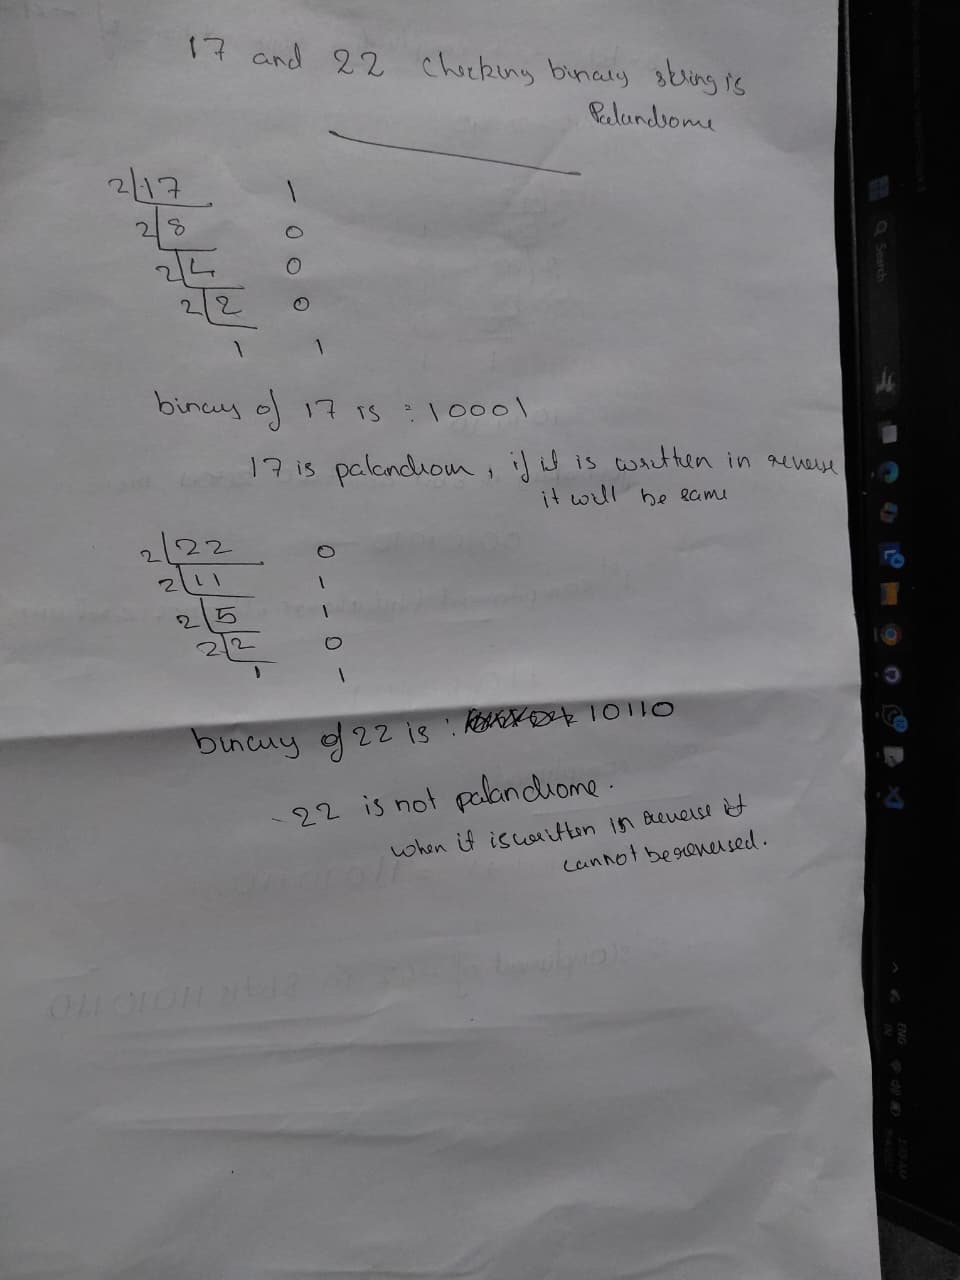 17 and 22 checking binary string is
Palandrome
2 17 1
2 8 0
2 4 0
2 2 0
1 1
binary of 17 is : 10001
17 is palandrom, if it is written in reverse
it will be same
2 22 0
2 11 1
2 5 1
2 2 0
1 1
binary of 22 is : 10110
22 is not palandrome.
when it is written in reverse it
cannot be reversed.
Search
ENG
IN